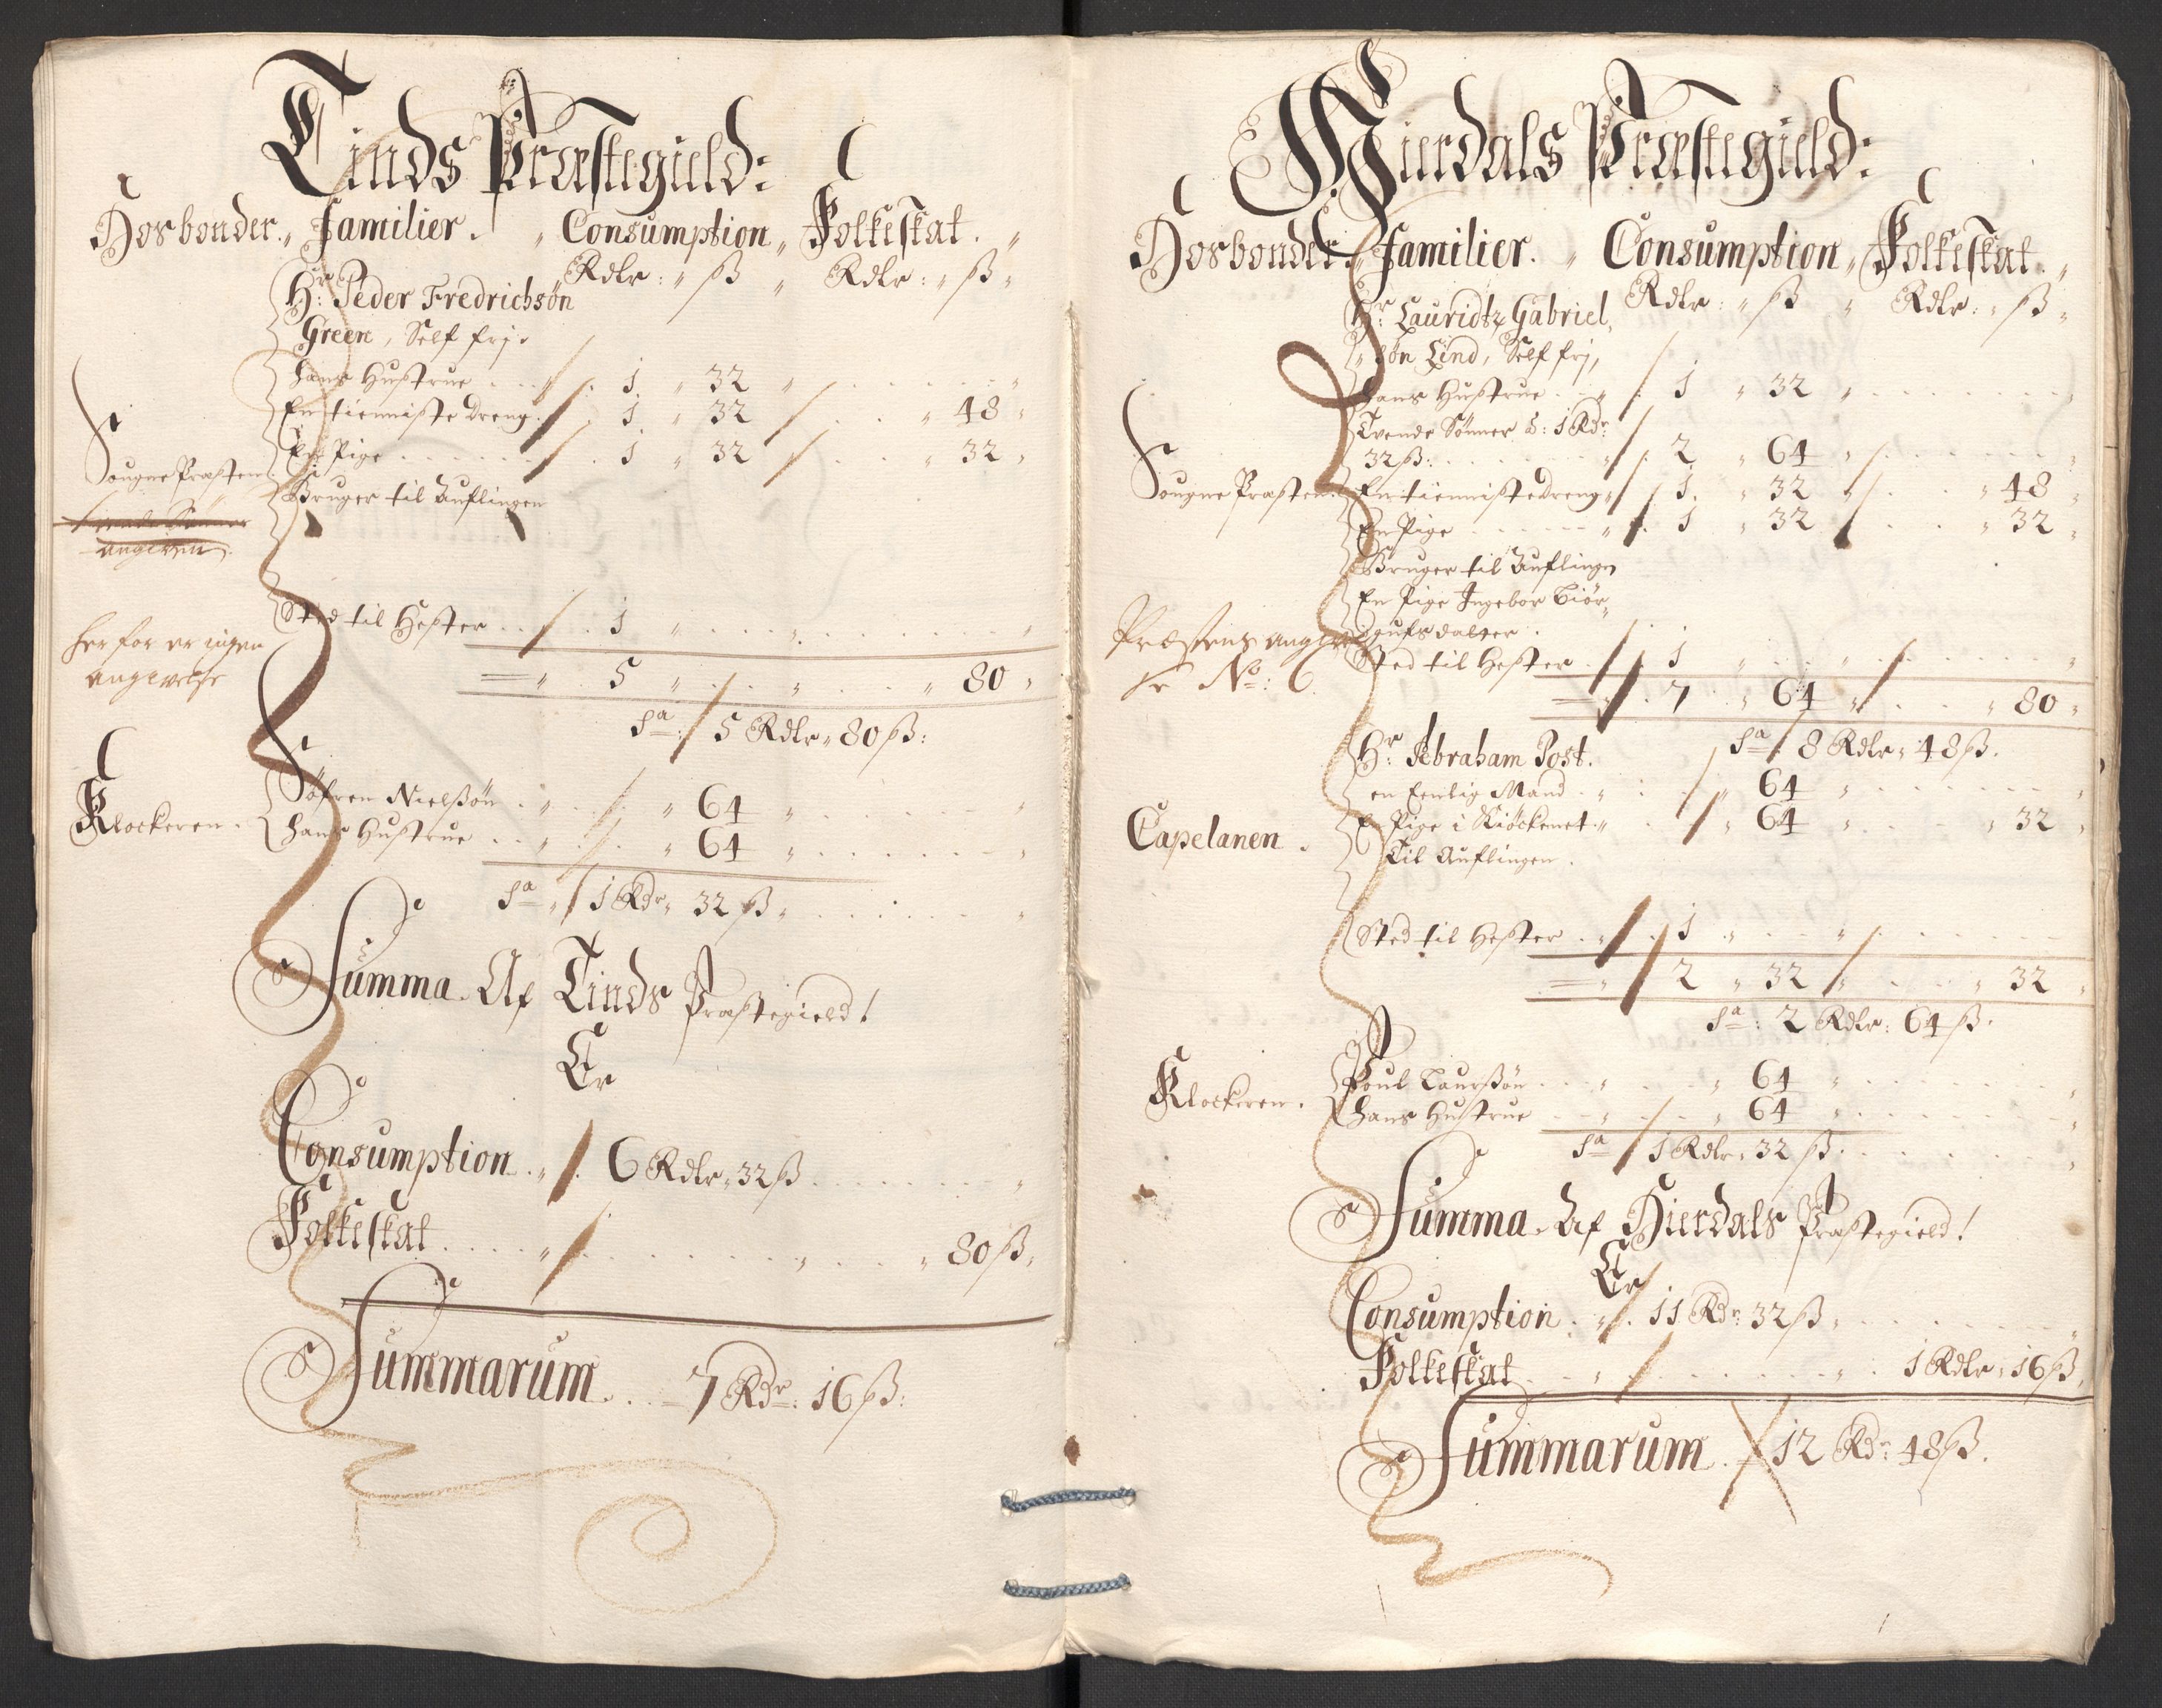 Tinds Præstegield:
Hosbonder. Familier. Consumption Folkeskat.
Rdlr: ß Rdlr: ß
Hr: Peder Fredrichsøn
Green, Self frj.
hans Hustrue . . . 1 " 32 "
En tienniste Dreng. 1 " 32 . . " 48 "
En Pige . . . . . 1 " 32 . . " 32 "
Sougne Præsten
Bruger til Auflingen
angiven
Sted til Hester . . . 1 "
her for er ingen
angivelse
5 " . . " 80 "
Sa: 5 Rdlr. 80 ß:
Klockeren.
Søfren Nielßøn . . . " 64 "
hans Hustrue . . . " 64 "
Sa 1 Rdr. 32 ß
Summa. Af Tinds Præstegield!
Er
Consumption . . 6 Rdlr. 32 ß
Folkeskat . . . . 80 ß.
Summarum. . . 7 Rdr. 16 ß:
Hierdals Præstegield:
Hosbonder. Familier. Consumption Folkeskat.
Rdlr: ß Rdlr: ß
Hr: Lauridtz Gabriel,
søn Lind, Self frj,
hans Hustrue . . 1 " 32 "
Tvende Sønner á: 1 Rdr
32 ß: . . . . 2 " 64 "
Sougne Præsten. En tienniste dreng 1. " 32 . . " 48 "
En Pige . . . . . 1 " 32 . . " 32 "
Bruger til Auflingen
En Pige Ingebor Biør,
gufsdatter .
Præstens
Sted til Hester . 1 "
No: 6.
7 " 64 . . " 80 "
Sa: 8 Rdlr. 48 ß.
Hr: Abraham Post.
en Eenlig Mand . . " 64 "
Capelanen.
En Pige i Kiøckenet . " 64 " . . " 32 "
Til Auflingen.
Sted til Hester . . 1 "
2 " 32 . . " 32 "
Sa: 2 Rdlr: 64 ß.
Klockeren.
Poul Laurßøn . . . " 64 "
hans Hustrue . . . " 64 "
Sa 1 Rdlr. 32 ß.
Summa. Af Hierdals Præstegield!
Er
Consumption . . 11 Rdr 32 ß
Folkeskat . . . . 1 Rdlr. 16 ß.
Summarum. 12 Rdr: 48 ß.